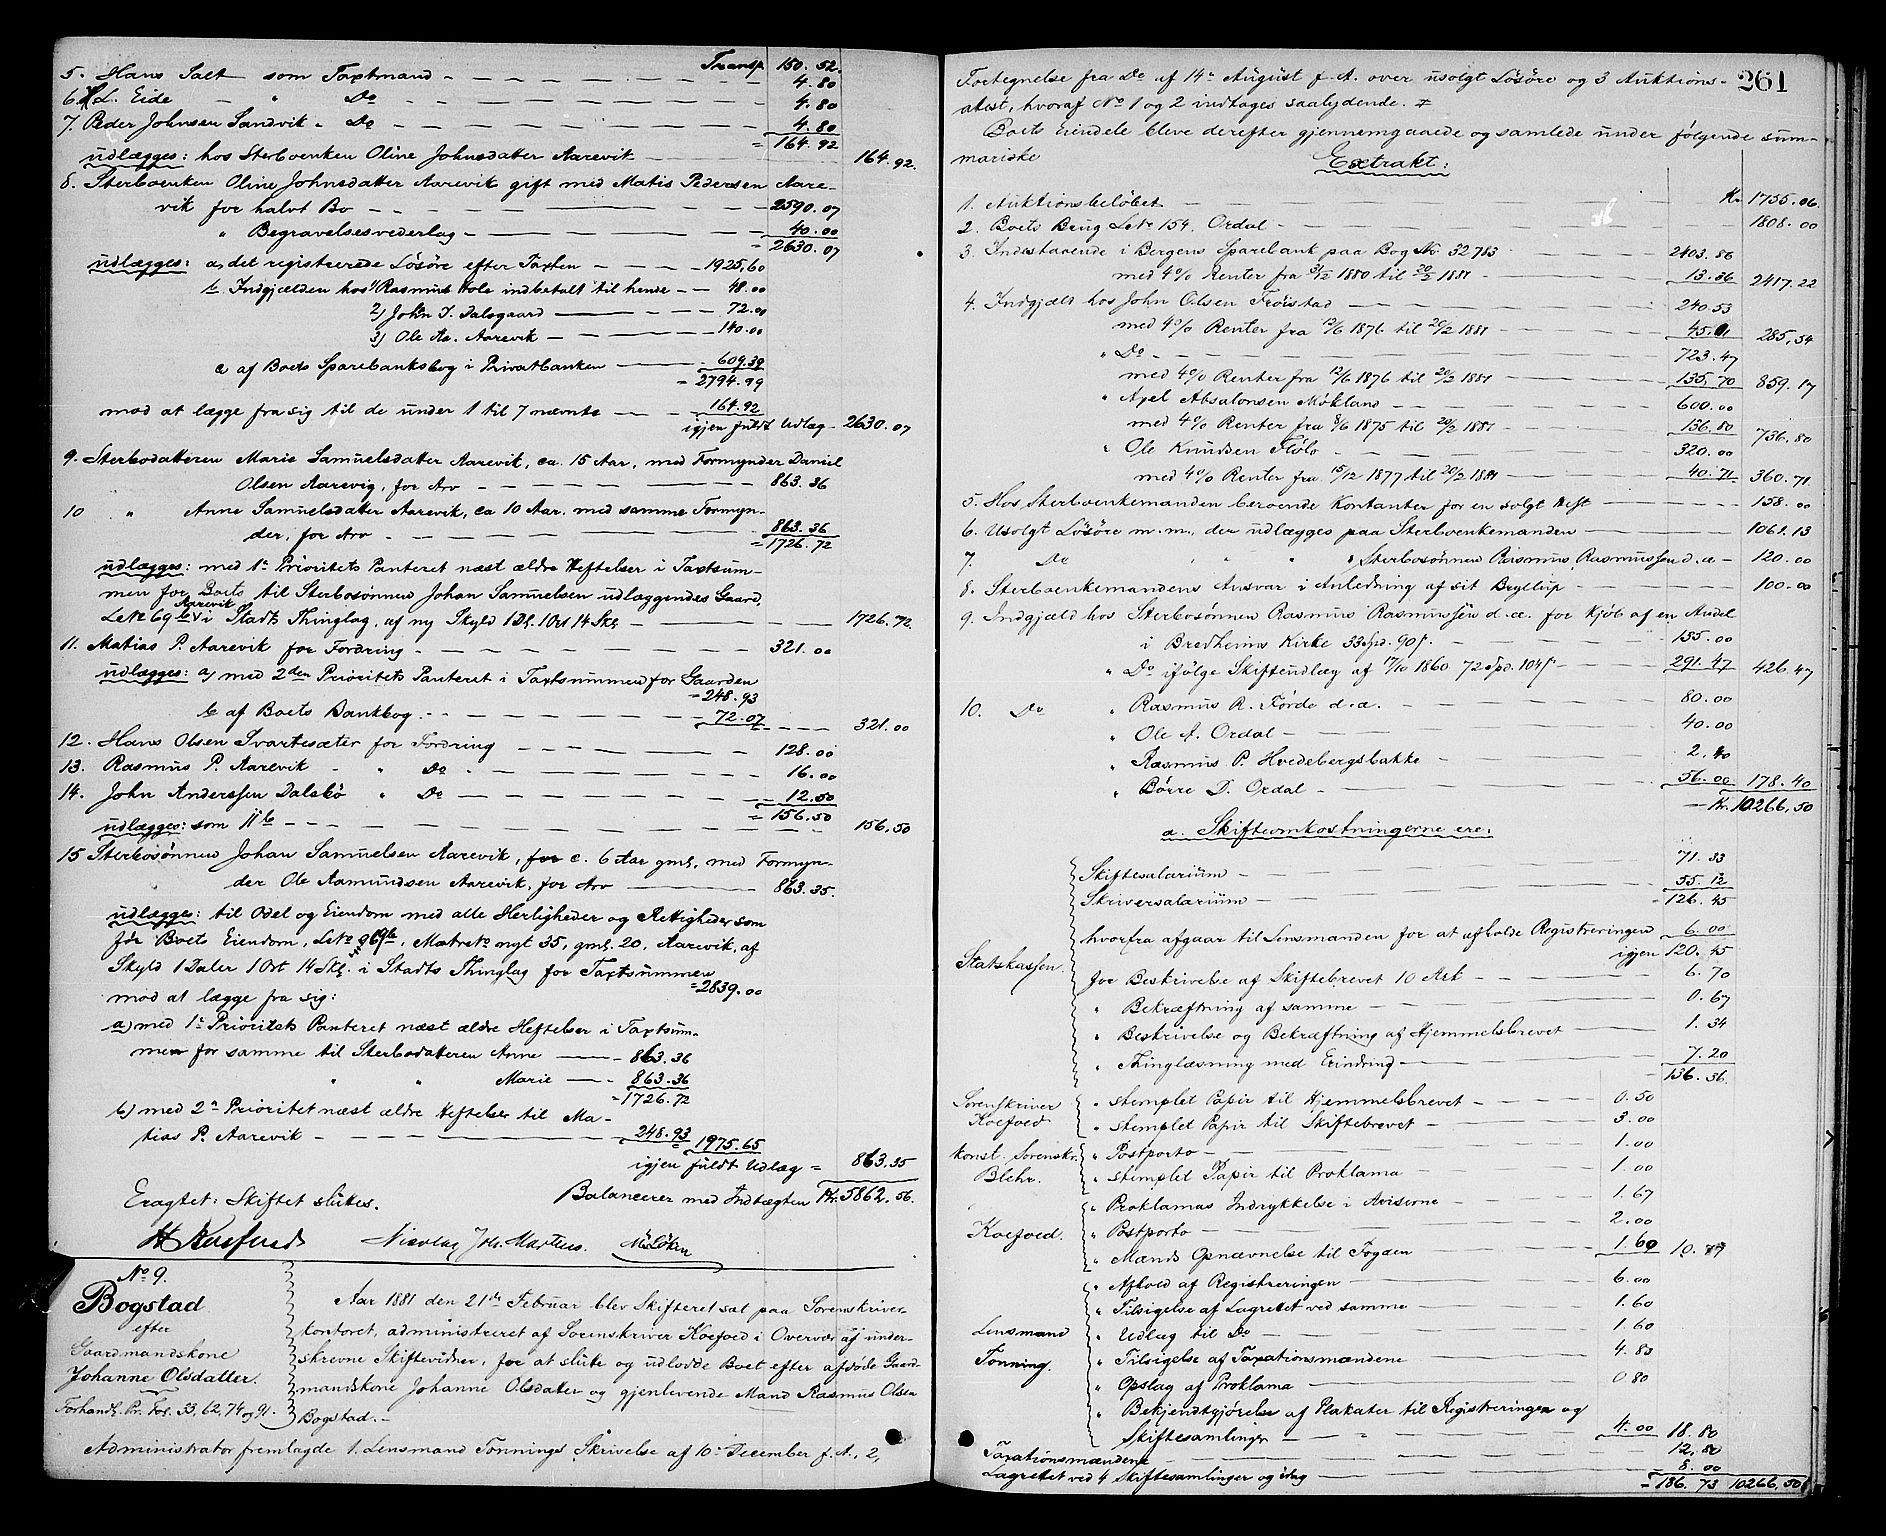 Transp. 150.52.
5. Hans Salt som Taxtmand - 4.80
6. L. Eide - " Do - 4.80
7. Peder Johnsen Sandvik - Do - 4.80
= 164.92
udlægges: hos Sterboenken Oline Johnsdatter Aarevik - 164.92.
8. Sterboenken Oline Johnsdatter Aarevik gift med Matis Pedersen Aare-
vik for halvt Bo - 2590.07
" Begravelsesvederlag - 40.00
= 2630.07
udlægges: a, det registrerede Løsøre efter Taxten - 1925,60
b. Indgjælden hos 1) Rasmus Hole indbetalt til hende - 48.00
2) John J. Dalsgaard - 72.00
3) Ole Aa. Aarevik - 140.00
c af Boets Sparebanksbog i Privatbanken - 609.39
= 2794.99
mod at lægge fra sig til de under 1 til 7 nævnte - 164.92
igjen fuldt Udlæg - 2630.07
9. Sterbodatteren Marie Samuelsdatter Aarevik, ca. 15 Aar, med Formynder Daniel
Olsen Aarevig, for Arv - 863.36
10 " Anne Samuelsdatter Aarevik, ca 10 Aar, med samme Formyn-
der, for Arv - 863.36
= 1726.72
udlægges: med 1ste Prioritets Panteret næst ældre Heftelser i Taxtsum-
men for Boets til Sterbosønnen Johan Samuelsen udlæggendes Gaard,
LNo 69 b Aarevik i Stadts Thinglag, af ny Skyld 1 Dl. 1 Ort 14 Sk. - 1726.72
11. Matias P. Aarevik for Fordring - 321.00
udlægges: a) med 2den Prioritets Panteret i Taxtsummen for Gaarden
= 248.93
b af Boets Bankbog. - 72.07 - 321.00
12. Hans Olsen Svartesæter for Fordring - 128.00
13. Rasmus P. Aarevik - " Do - 16.00
14. John Anderssen Dalsbø " Do - 12.50
= 156.50
udlægges: som 11 b - 156,50
15 Sterbosønnen Johan Samuelsen Aarevik, for c. 6 Aar gml, med Formyn-
der Ole Aamundsen Aarevik, for Arv - 863.35.
udlægges: til Odel og Eiendom med alle Herligheder og Rettigheder som
før Boets Eiendom, LNo 69 b, Matr No nyt 35, gml. 20, Aarevik, af
Skyld 1 Daler 1 Ort 14 Sk. i Stadts Thinglag for Taxtsummen
= 2839.00
mod at lægge fra sig:
a) med 1ste Prioritets Panteret næst ældre Heftelser i Taxtsum-
men for samme til Sterbodatteren Anne - 863.36
" " Marie - 863.36
= 1726.72
b) med 2den Prioritet næst ældre Heftelser til Ma-
tias P. Aarevik - 248.93 = 1975.65
igjen fuldt Udlæg = 863.35
Eragtet: Skiftet slutes. Balancerer med Indtægten Kr. 5862.56.
H Koefoed Nicolay Joh. Martens. M. Løken
No 9.
Bogstad
efter
Gaardmandskone
Johanne Olsdatter.
Forhandl. Pr. Fol. 33, 62, 74 og 91.
Aar 1881 den 21de Februar blev Skifteret sat paa Sorenskriver-
kontoret, administreret af Sorenskriver Koefoed i Overvær af under-
skrevne Skiftevidner, for at slutte og udlodde Boet efter afdøde Gaard-
mandskone Johanne Olsdatter og gjenlevende Mand Rasmus Olsen
Bogstad. -
Administrator fremlagde 1. Lensmand Tonnings Skrivelse af 10de December f. A., 2,
261
Fortegnelse fra Do af 14de August f. A. over usolgt Løsøre og 3 Auktions-
attest, hvoraf No 1 og 2 indtages saalydende. ≠
Boets Eiendele bleve derefter gjennemgaaede og samlede under følgende sum-
mariske
Extrakt:
1. Auktionsbeløbet - Kr. 1755.06
2. Boets Brug LNo 154, Ordal - 1808.00
3. Indestaaende i Bergens Sparebank paa Bog No. 32713 - 2403.86
med 4% Renter fra 31/12 1880 til 20/2 1881 - 13.36 2417.22
4. Indgjæld hos John Olsen Frøistad - 240.53
med 4% Renter fra 12/6 1876 til 20/2 1881 - 45,01 285,54
" Do - 723.47
med 4% Renter fra 12/6 1876 til 20/2 1881 - 135,70 859.17
" Axel Absalonsen Møkland - 600.00
med 4% Renter fra 8/6 1875 til 20/2 1881 - 136,80 736,80
" Ole Knudsen Flølo - 320.00
med 4% Renter fra 15/12 1877 til 20/2 1881 - 40.71 360.71
5. Hos Sterboenkemanden beroende Kontanter for en solgt Hest - 158.00
6. Usolgt Løsøre m. m., der udlægges paa Sterboenkemanden - 1061.13
7. Do " " " Sterbosønnen Rasmus Rasmussen d. æ. - 120.00
8. Sterboenkemandens Ansvar i Anledning af sit Bryllup - 100.00
9. Indgjæld hos Sterbosønnen Rasmus Rasmussen d. æ. for Kjøb af en Andel
i Bredheims Kirke 33 Spd. 90 s. - 135.00
" Do ifølge Skifteudlæg af 17/10 1860 72 Spd. 104 s. - 291.47 426.47
10. Do " Rasmus R. Førde d. æ. - 80.00
" Ole A. Ordal - 40.00
" Rasmus P. Hvedebergsbakke - 2.40
" Børre D. Ordal - 56.00 178.40
Kr. 10266,50
a. Skifteomkostningerne ere:
Statskassen.
Skiftesalarium - 71.33
Skriversalarium - 55.12
= 126.45
hvorfra afgaar til Lensmanden for at afholde Registreringen 6.00
igjen 120.45
for Beskrivelse af Skiftebrevet 10 Ark - 6.70
" Bekræftning af samme - 0.67
" Beskrivelse og Bekræftning af Hjemmelsbrevet - 1.34
" Thinglæsning med Erindring - 7.20
136.36
Sorenskriver
Koefoed
" stemplet Papir til Hjemmelsbrevet - 0.50
" stemplet Papir til Skiftebrevet - 3.00
konst. Sorenskr.
Blehr.
" Postporto - 1.00
" stemplet Papir til Proklama - 1.00
Koefoed.
" Proklamas Indrykkelse i Aviserne - 1.67
" Postporto - 2.00
" Mænds Opnævnelse til Fogden - 1.60 10.77
Lensmand
Tonning.
" Afhold af Registreringen - 6.00
" Tilsigelse af Lagrettet ved samme - 1.60
" Udlæg til Do - 1.60
" Tilsigelse af Taxationsmændene - 4.80
" Opslag af Proklama - 0 80
" Bekjendtgjørelse af Plakater til Registreringen og
Skiftesamlinger - 4.00 18.80
Taxationsmændene - 12,80
Lagrettet ved 4 Skiftesamlinger og idag - 8.00
= 186.73 10266,50